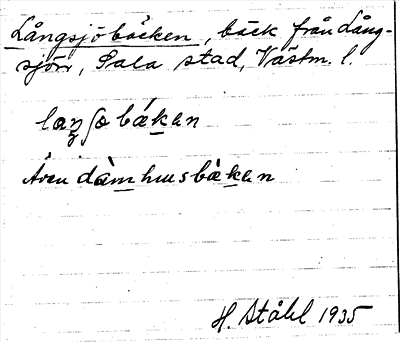 Långsjöbäcken, bäck från Lång-
sjön, Sala stad, Västm. l.
Även dàmhusbäkan
H. Ståhl 1935